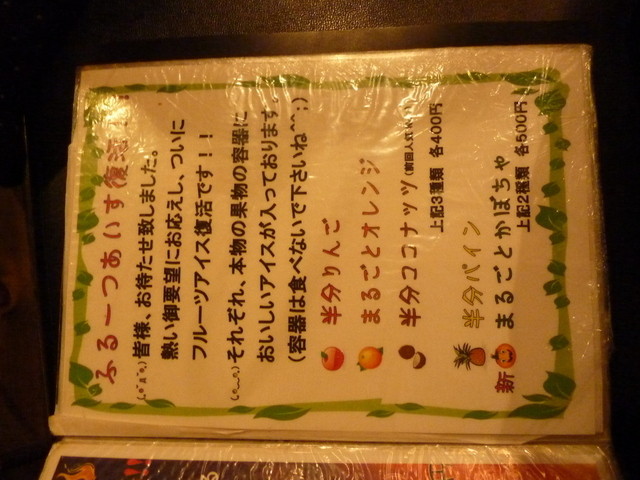 ふるーつあいす復活!!
皆様、お待たせ致しました。
熱い御要望にお応えし、ついに
フルーツアイス復活です!!
それぞれ、本物の果物の容器に
おいしいアイスが入っております。
(容器は食べないで下さいね^^;)
半分りんご
まるごとオレンジ
半分ココナッツ
上記3種類 各400円
半分パイン
新 まるごとかぼちゃ
上記2種類 各500円